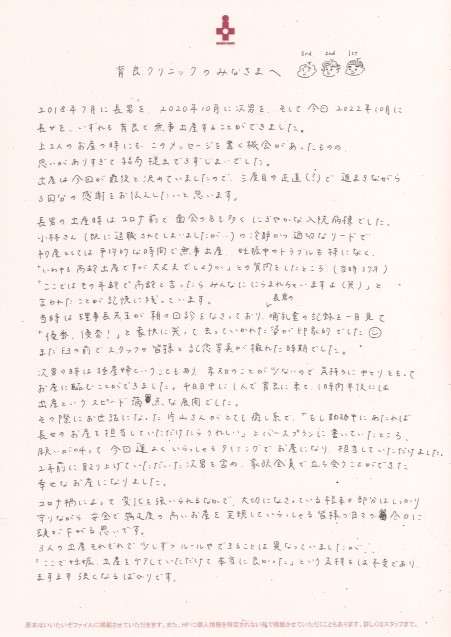 3rd 2nd 1st
育良クリニックのみなさまへ
2018年7月に長男を、2020年10月に次男を、そして今回2022年10月に
長女を、いずれも育良で無事出産することができました。
上2人のお産の時にも、このメッセージを書く機会があったものの、
思いがありすぎて結局提出できずじまいでした。
出産は今回が最後と決めていましたので、三度目の正直(!?)で遅まきながら
3回分の感謝をお伝えしたいと思います。
長男の出産時はコロナ前で面会の方も多くにぎやかな入院病棟でした。
小林さん(既に退職されてしまいましたが…)の冷静かつ適切なリードで
初産としては平均的な時間で無事出産、妊娠中のトラブルも特になく、
「いわゆる高齢出産ですが大丈夫でしょうか」との質問をしたところ(当時37才)
「ここではその年齢で高齢と言ったらみんなににらまれちゃいますよ(笑)」と
言われたことが記憶に残っています。
長男の
当時は理事長先生が朝の回診をなさっており、哺乳量の記録を一目見て
「優秀、優秀!」と豪快に笑って去っていかれた姿が印象的でした
まだ目の前でスタッフの皆様と記念写真が撮れた時期でした。
次男の時は経産婦ということもあり、未知のことが少ないので気持ちにゆとりをもって
お産に臨むことができました。平日中に1人で育良に来て、10時半頃には
出産というスピード満点な展開でした。
その際にお世話になった片山さんがとても癒し系で、「もし勤務中にあたれば
長女のお産を担当していただけたらうれしい」とバースプランに書いていたところ、
願いが叶って今回運よくいらっしゃるタイミングでお産になり、担当していただけました。
2年前に取り上げていただいた次男を含め、家族全員で立ち会うことができた
幸せなお産になりました。
コロナ禍によって変化を強いられるなかで、大切になさっている根本の部分はしっかり
守りながら安全で満足度の高いお産を実現していらっしゃる皆様の日々の
頭が下がる思いです。
3人の出産それぞれで少しずつルールやできることは異なっていましたが
「ここで妊娠、出産をケアしていただけて本当に良かった」という気持ちは不変であり
ますます強くなるばかりです。
原本はいいたいぞうファイルに掲載させていただきます。また、HPに個人情報を特定されない形で掲載させていただくこともあります。詳しくはスタッフまで。